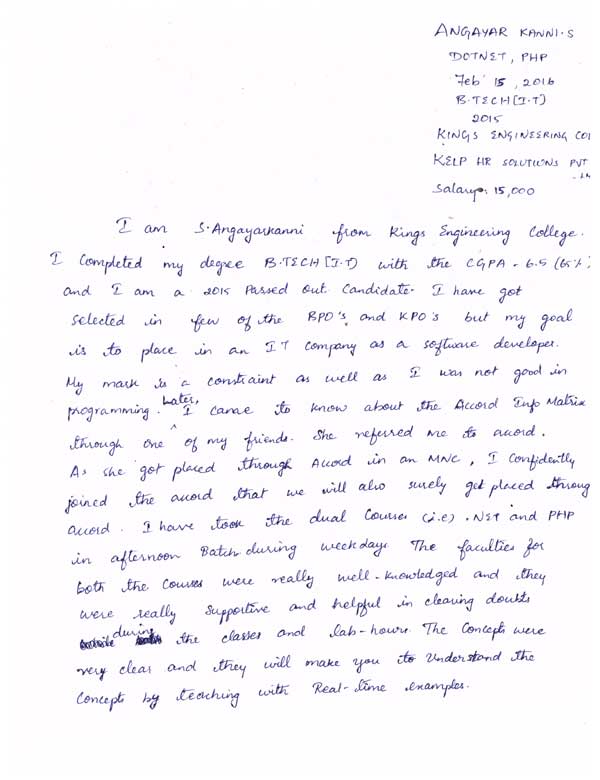 ANGAYAR KANNI.S
DOTNET, PHP
Feb' 15, 2016
B.TECH[I.T)
2015
KINGS ENGINEERING COL
KELP HR SOLUTIONS PVT
Salary: 15,000
I am S.Angayarkanni from Kings Engineering College.
I completed my degree B.TECH[I.T) with the CGPA - 6.5 (65%)
and I am a 2015 Passed out Candidate. I have got
selected in few of the BPO's and KPO's but my goal
is to place in an IT company as a software developer.
My mark is a constraint as well as I was not good in
programming. Later, I came to know about the Accord Info Matrix
through one of my friends. She referred me to accord.
As she got placed through Accord in an MNC, I Confidently
joined the accord that we will also surely get placed throug
accord. I have took the dual Courses (i.e) .NET and PHP
in afternoon Batch during weekdays The faculties for
both the Courses were really well-knowledged and they
were really Supportive and helpful in clearing doubts
during the classes and lab-hours. The Concepts were
very clear and they will make you to Understand the
Concepts by teaching with Real-time examples.